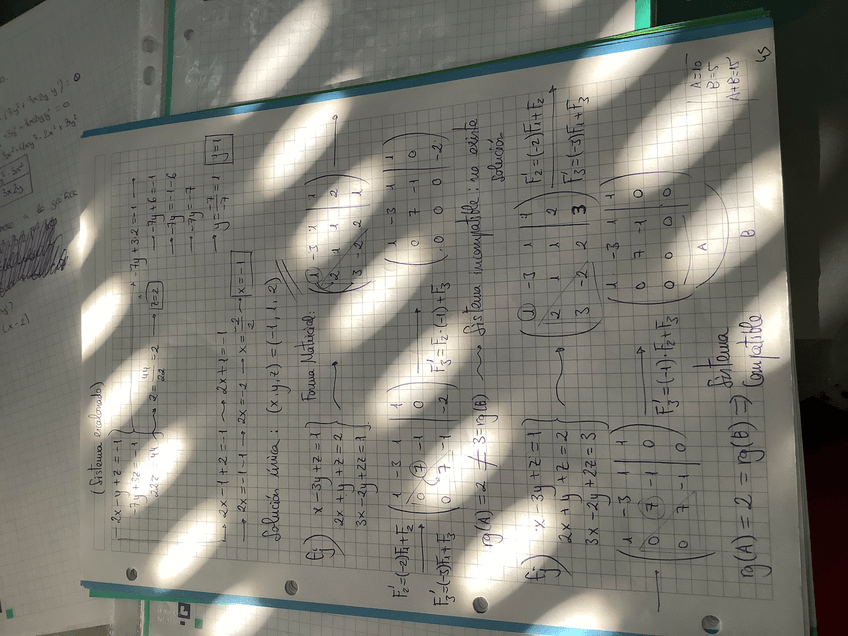 (Sistema escalonado)
2x - y + z = -1
-7y + 3z = -1
22z = 44
→ z = 44/22 = 2 → z = 2
→ -7y + 3·2 = -1 →
→ -7y + 6 = -1
→ -7y = -1 - 6
→ -7y = -7
→ y = -7/-7 = 1 y = 1
→ 2x - 1 + 2 = -1 → 2x + 1 = -1
→ 2x = -1 - 1 → 2x = -2 → x = -2/2 → x = -1
Solución única : (x, y, z) = (-1, 1, 2)
Ej) x - 3y + z = 1
2x + y + z = 2
3x - 2y + 2z = 1
Forma Matricial:
1 -3 1 | 1
2 1 1 | 2
3 -2 2 | 1
F₂' = (-2)F₁ + F₂
F₃' = (-3)F₁ + F₃
1 -3 1 | 1
0 7 -1 | 0
0 7 -1 | -2
F₃' = F₂·(-1) + F₃
1 -3 1 | 1
0 7 -1 | 0
0 0 0 | -2
rg(A) = 2 ≠ 3 = rg(B) → Sistema incompatible: no existe
solución
Ej) x - 3y + z = 1
2x + y + z = 2
3x - 2y + 2z = 3
1 -3 1 | 1
2 1 1 | 2
3 -2 2 | 3
F₂' = (-2)F₁ + F₂
F₃' = (-3)F₁ + F₃
1 -3 1 | 1
0 7 -1 | 0
0 7 -1 | 0
F₃' = (-1)·F₂ + F₃
1 -3 1 | 1
0 7 -1 | 0
0 0 0 | 0
A
B
rg(A) = 2 = rg(B) ⇒ Sistema
Compatible
A=10
B=5
A+B=15
45